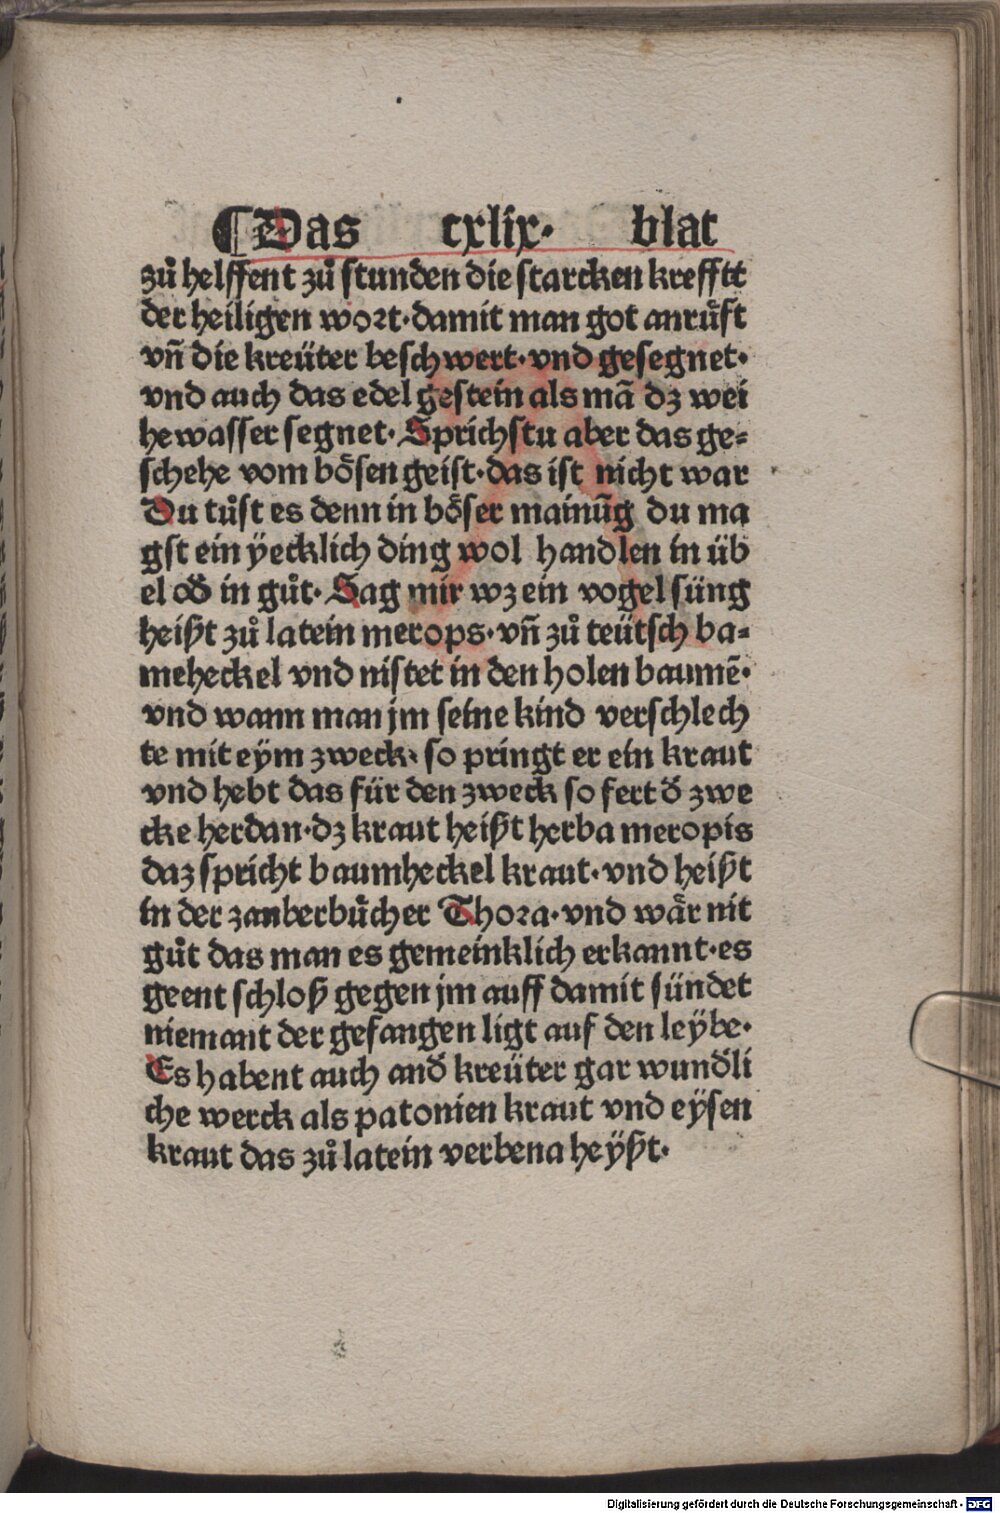 ¶Das cxlix· blat
zů helffent zů stunden die starcken krefftt
der heiligen wort·damit man got anrůft
vn̄ die kreüter beschwert·vnd gesegnet·
vnd auch das edel gestein als mā dz wei
hewasser segnet· Sprichstu aber das ge=
schehe vom bösen geist·das ist nicht war
Du tůst es denn in böser mainūg du ma
gst ein ÿecklich ding wol handlen in üb
el od̄ in gůt· Sag mir wz ein vogel süng
heißt zů latein merops·vn̄ zů teütsch ba=
meheckel vnd nistet in den holen baumē·
vnd wann man jm seine kind verschlech
te mit eÿm zweck· so pringt er ein kraut
vnd hebt das für den zweck so fert d̄ zwe
cke herdan·dz kraut heißt herba meropis
daz spricht baumheckel kraut·vnd heißt
in der zanberbůcher Thora·vnd wår nit
gůt das man es gemeinklich erkannt·es
geent schloß gegen jm auff damit sündet
niemant der gefangen ligt auf den leÿbe·
Es habent auch and̄ kreüter gar wund̄li
che werck als patonien kraut vnd eÿsen
kraut das zů latein verbena heÿßt·
Digitalisierung gefördert durch die Deutsche Forschungsgemeinschaft · DFG